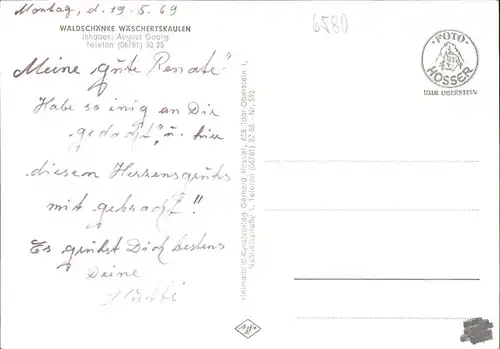 Montag, d. 19.5.69
6580
WALDSCHÄNKE WÄSCHERTSKAULEN
Inhaber: August Georg
Telefon (06781) 52 25
Meine "gute Renate"
Habe so inig an Dir
gedacht", u. hier
diesem Herzensgruhs
mit gebracht"!
Es gruhst Dich bestens
Deine
Mutti
Heimatbild-Kunstverlag Gerhard Hosser, 658 Idar-Oberstein 1,
1, Telefon (06781)
FOTO
HOSSER
IDAR OBERSTEIN
Agfa